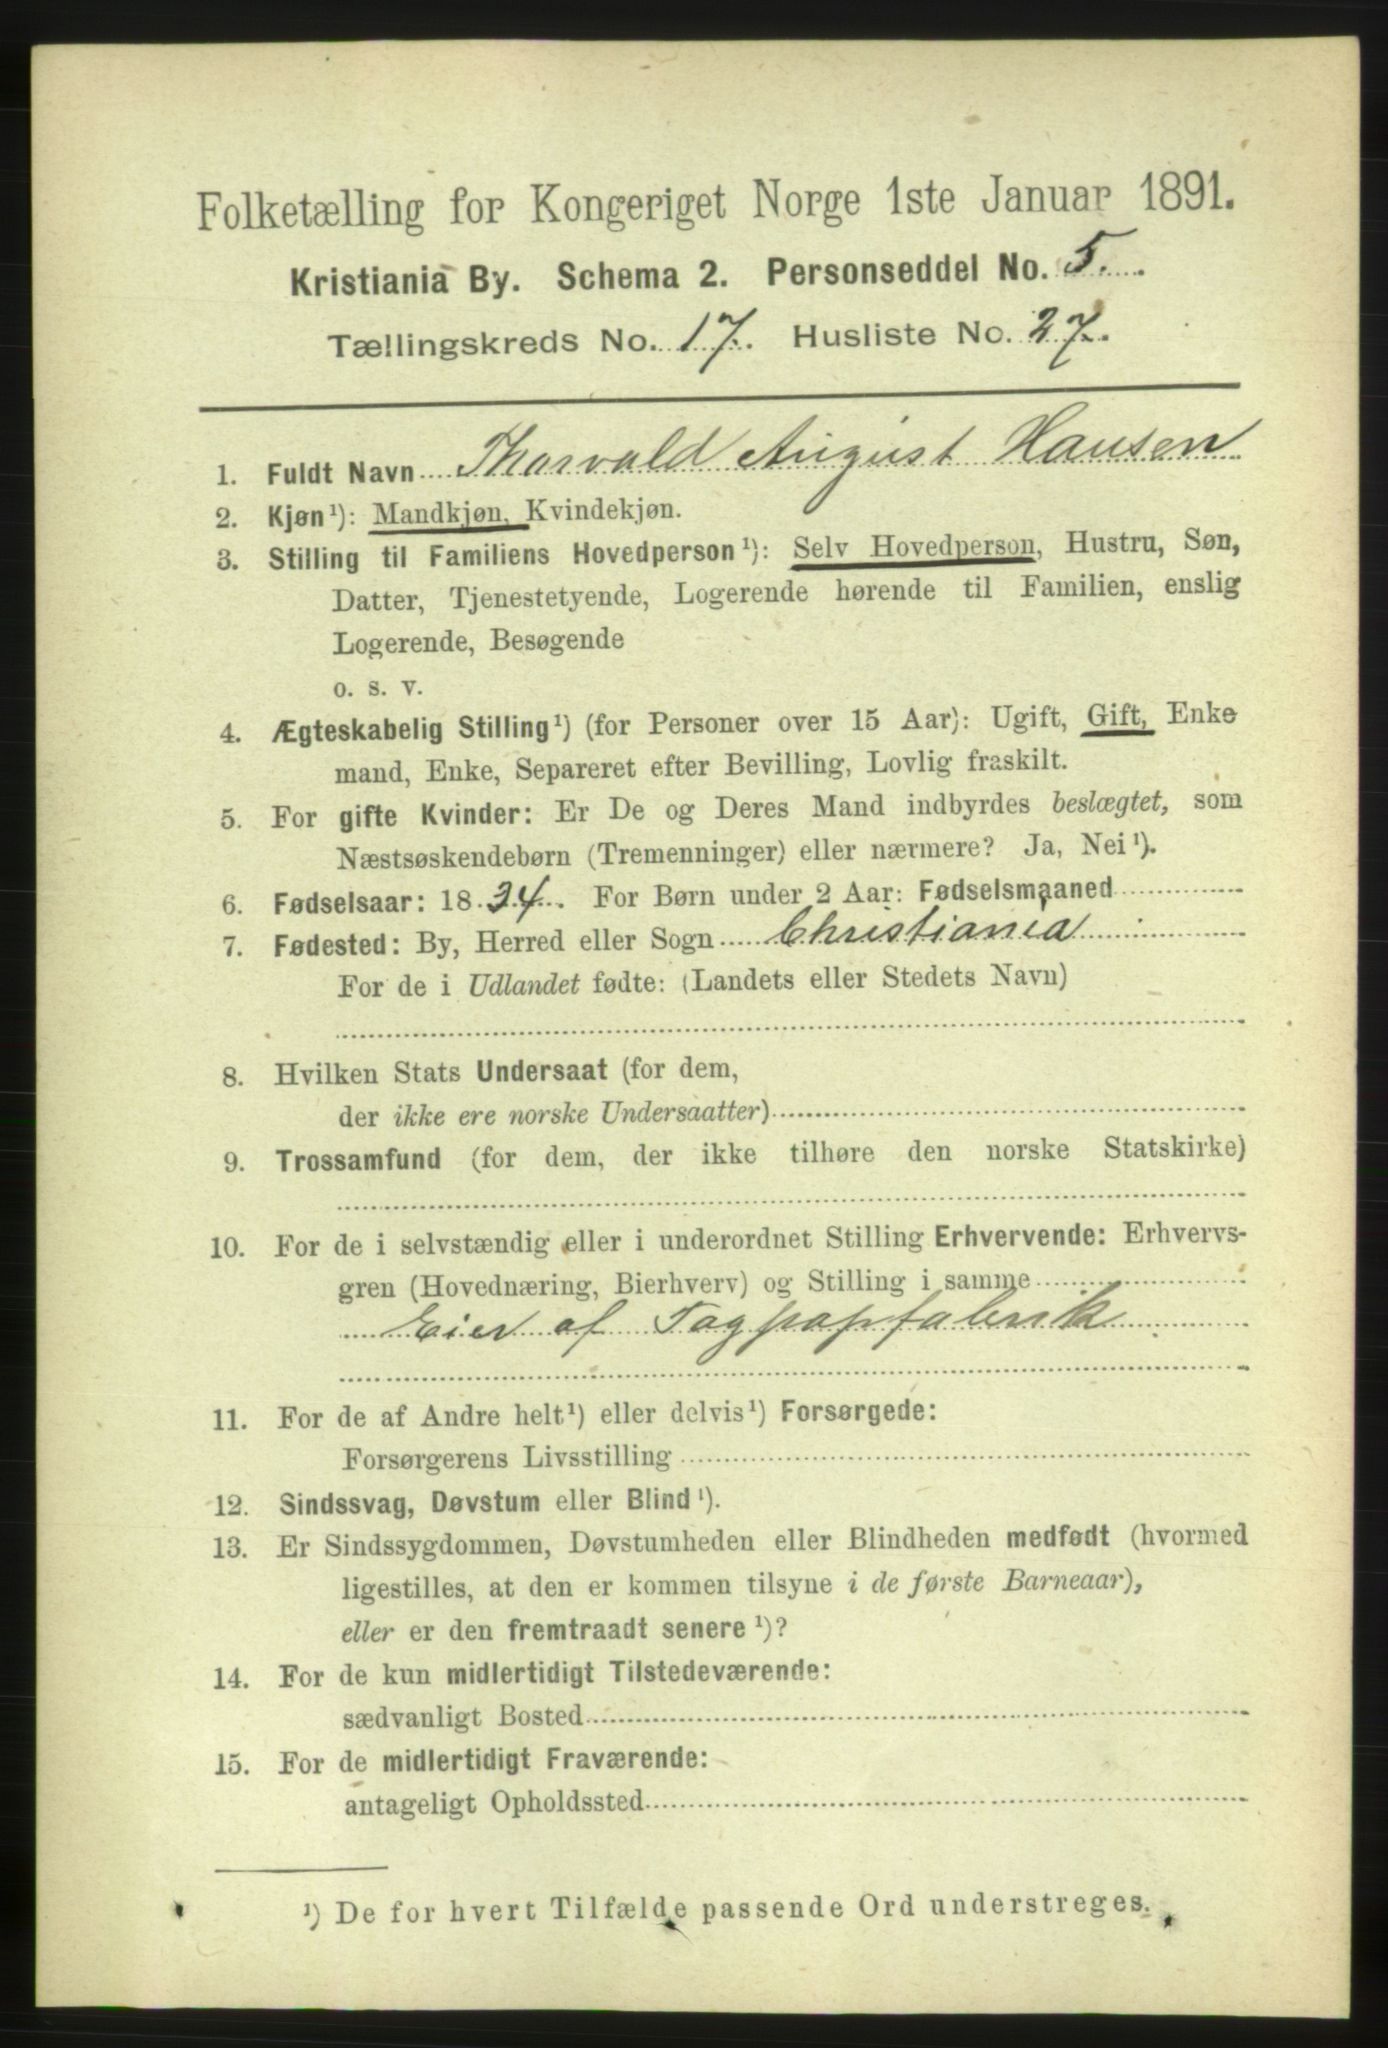 Folketælling for Kongeriget Norge 1ste Januar 1891.
Kristiania By. Schema 2. Personseddel No. 5.
Tællingskreds No. 17. Husliste No. 27.
1. Fuldt Navn Thorvald August Hansen
2. Kjøn¹): Mandkjøn, Kvindekjøn.
3. Stilling til Familiens Hovedperson¹): Selv Hovedperson, Hustru, Søn,
Datter, Tjenestetyende, Logerende hørende til Familien, enslig
Logerende, Besøgende
o. s. v.
4. Ægteskabelig Stilling¹) (for Personer over 15 Aar): Ugift, Gift, Enke
mand, Enke, Separeret efter Bevilling, Lovlig fraskilt.
5. For gifte Kvinder: Er De og Deres Mand indbyrdes beslægtet, som
Næstsøskendebørn (Tremenninger) eller nærmere? Ja, Nei¹).
6. Fødselsaar: 1834. For Børn under 2 Aar: Fødselsmaaned
7. Fødested: By, Herred eller Sogn Christiania
For de i Udlandet fødte: (Landets eller Stedets Navn)
8. Hvilken Stats Undersaat (for dem,
der ikke ere norske Undersaatter)
9. Trossamfund (for dem, der ikke tilhøre den norske Statskirke)
10. For de i selvstændig eller i underordnet Stilling Erhvervende: Erhvervs-
gren (Hovednæring, Bierhverv) og Stilling i samme
Eier af Tagpapfabrik
11. For de af Andre helt¹) eller delvis¹) Forsørgede:
Forsørgerens Livsstilling
12. Sindssvag, Døvstum eller Blind¹).
13. Er Sindssygdommen, Døvstumheden eller Blindheden medfødt (hvormed
ligestilles, at den er kommen tilsyne i de første Barneaar),
eller er den fremtraadt senere¹)?
14. For de kun midlertidigt Tilstedeværende:
sædvanligt Bosted
15. For de midlertidigt Fraværende:
antageligt Opholdssted
¹) De for hvert Tilfælde passende Ord understreges.